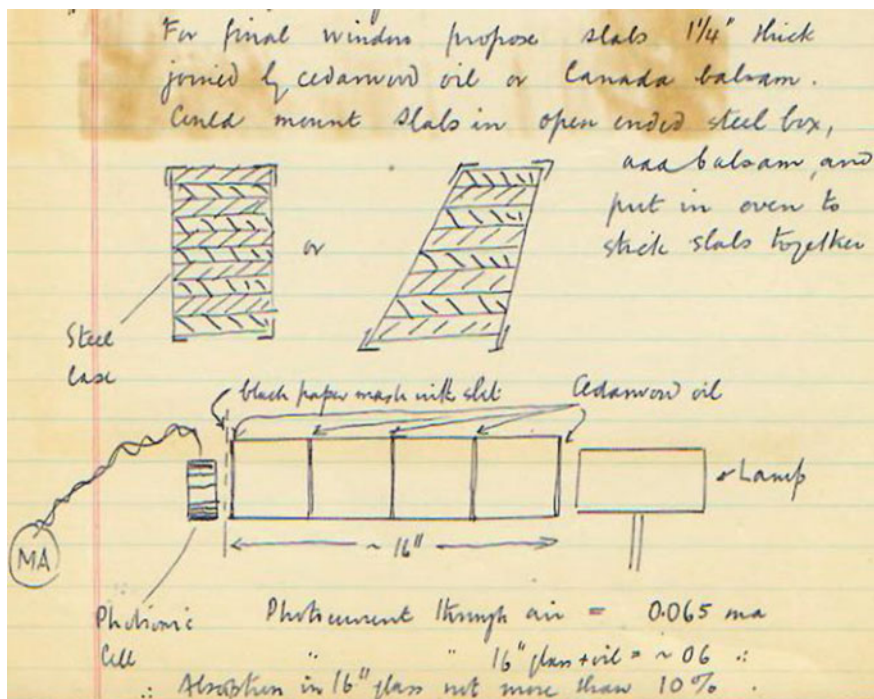 For final window propose slabs 1 1/4" thick
joined by cedarwood oil or Canada balsam.
Could mount slabs in open ended steel box,
add balsam, and
put in oven to
stick slabs together
or
Steel
Case
black paper mask with slit
Cedarwood oil
Lamp
MA
~ 16"
Photronic
Cell
Photocurrent through air = 0.065 ma
" " 16" glass + oil = ~ 06 "
∴ Absorption in 16" glass not more than 10%.